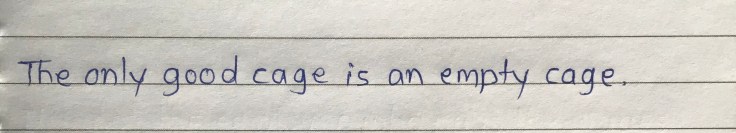 The only good cage is an empty cage.